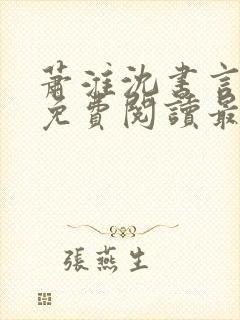 蕭淮沈書言
免費閱讀最
張燕生